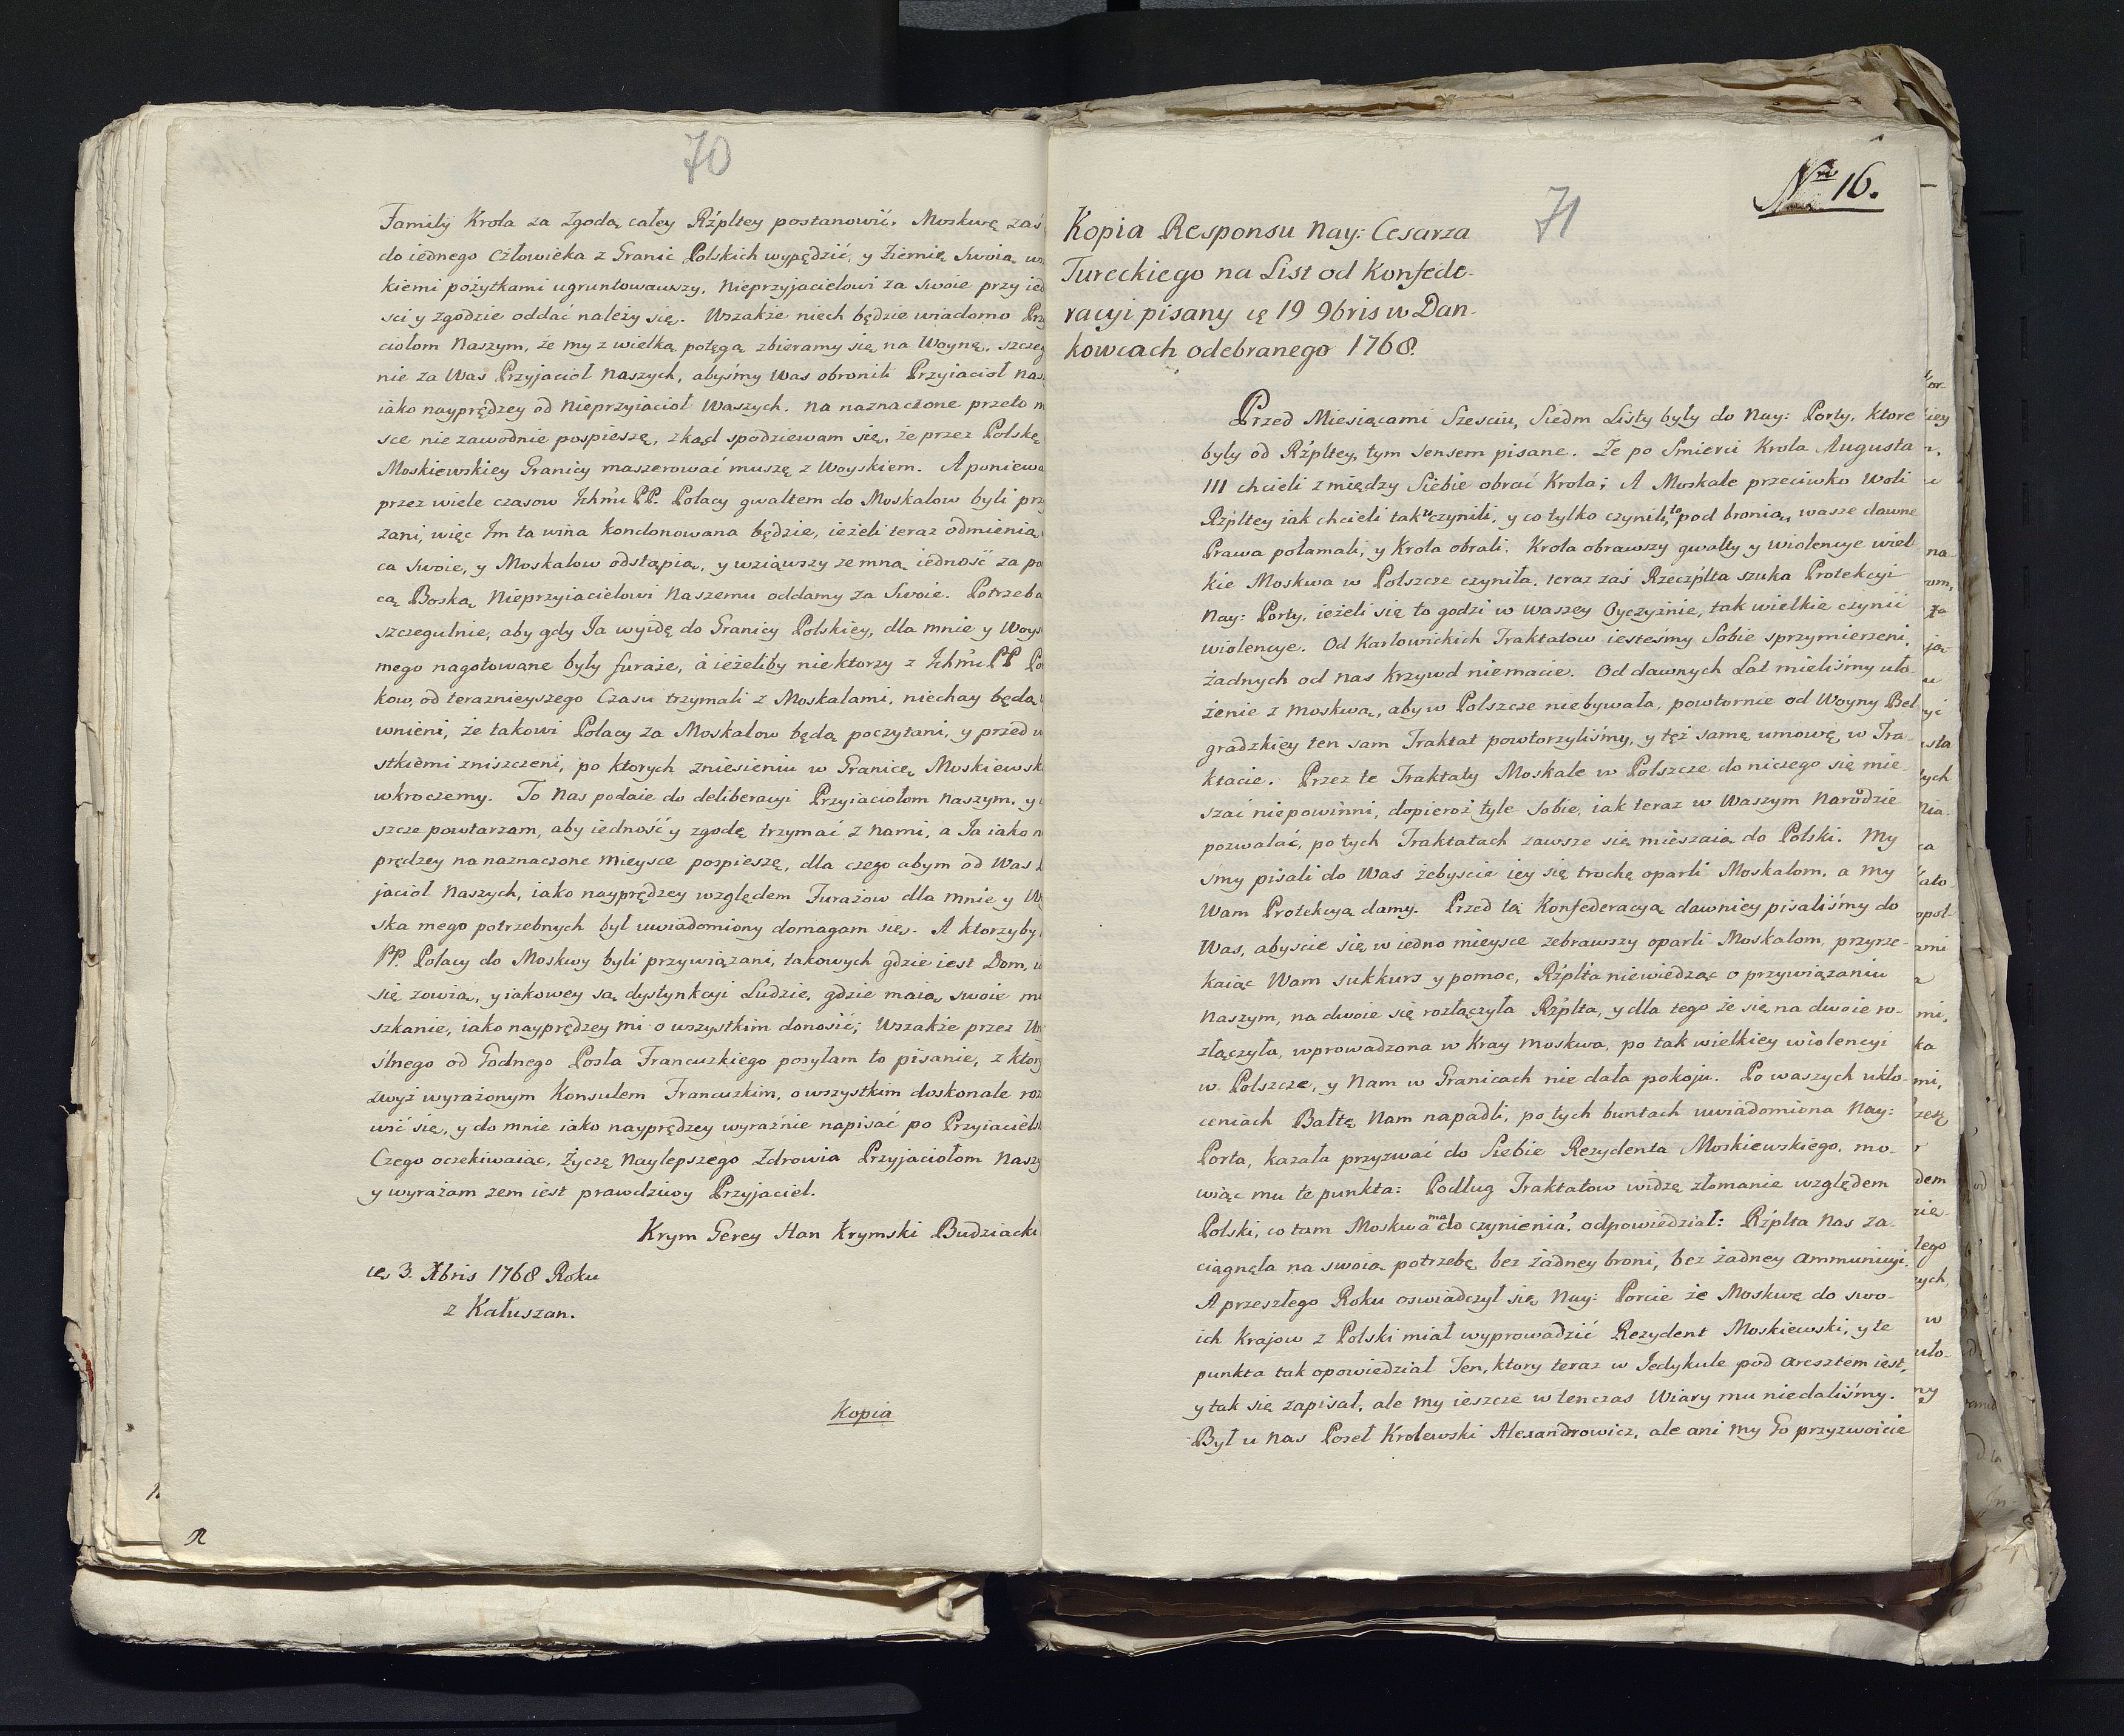 70
Familij Krola za zgodą całey Rzpltey postanowić. Moskwę zaś
do iednego człowieka z Granic Polskich wypędzić, y Ziemię Swoią
kiemi pożytkami ugruntowawszy, Nieprzyjacielowi za Swoie przy
sci y zgodzie oddać należy się. Wszakże niech będzie wiadomo
ciołom Naszym, że my z wielką potęgą zbieramy się na Woynę,
nie za Was Przyjacioł Naszych, abyśmy Was obronili Przyiacioł
iako nayprędzey od Nieprzyiacioł Waszych. Na naznaczone przeto
sce nie zawodnie pospieszę, zkąd spodziewam się, że przez Polskę
Moskiewskiey Granicy maszerować muszę z Woyskiem. A poniewa
przez wiele czasow Ichmć PP. Polacy gwałtem do Moskalow byli
zani, więc Im ta wina kondonowana będzie, ieżeli teraz odmienią
ca Swoie, y Moskalow odstąpią, y wziąwszy ze mną iedność za
cą Boską Nieprzyiacielowi Naszemu oddamy za Swoie. Potrzeba
szczegulnie, aby gdy Ja wyidę do Granicy Polskiey, dla mnie y
mego nagotowane były furaże, á ieżeliby niektorzy z Ichmć PP
kow, od teraznieyszego Czasu trzymali z Moskalami, niechay będą
wnieni, że takowi Polacy za Moskalow będą poczytani, y przed
stkiemi zniszczeni, po ktorych zniesieniu w Granicę Moskiewsk
wkroczemy. To Nas podaie do deliberacyi Przyiaciołom Naszym, y
szcze powtarzam, aby iedność y zgodę trzymać z Nami, a Ja iako
prędzey na naznaczone Mieysce pospieszę, dla czego abym od Was
jacioł Naszych, iako nayprędzey względem Furażow dla mnie y
ska mego potrzebnych był uwiadomiony domagam się. A ktorzyby
PP. Polacy do Moskwy byli przywiązani, takowych gdzie iest Dom,
się zowią, y iakowey są dystynkcyi Ludzie, gdzie maią swoie
szkanie, iako nayprędzey mi o wszystkim donosić; Wszakże przez
ślnego od Godnego Posła Francuzkiego posyłam to pisanie, z
zwyż wyrażonym Konsulem Francuzkim, o wszystkim doskonale
wić się, y do mnie iako nayprędzey wyraźnie napisać po
Czego oczekiwaiąc, Życzę Naylepszego Zdrowia Przyjaciołom
y wyrażam zem iest prawdziwy Przyjaciel.
Krym Gerey Han Krymski Budziacki
ię 3. Xbris 1768 Roku
z Kałuszan.
Kopia
Nro 16.
71
Kopia Responsu Nay: Cesarza
Tureckiego na List od Konfede-
racyi pisany ię 19 9bris w Dan-
kowcach odebranego 1768.
Przed Miesiącami Szesciu, Siedm Listy były do Nay: Porty, ktore
były od Rzpltey, tym Sensem pisane. Że po Śmierci Krola Augusta
III chcieli z między Siebie obrać Krola; A Moskale przeciwko Woli
Rzpltey iak chcieli tak uczynili, y co tylko czynili, to pod bronią, wasze dawne
Prawa połamali, y Krola obrali. Krola obrawszy gwałty y Wiolencye wiel
kie Moskwa w Polszcze czyniła, teraz zaś Rzeczplta szuka Protekcyi
Nay: Porty, ieżeli się to godzi w Waszey Oyczyźnie, tak wielkie czynić
wiolencye. Od Karłowickich Traktatow iesteśmy Sobie sprzymierzeni,
żadnych od nas krzywd niemacie. Od dawnych Lat mieliśmy uło-
żenie z Moskwą, aby w Polszcze niebywała, powtornie od Woyny Bel
gradzkiey ten sam Traktat powtorzyliśmy, y tęż samę umowę w Tra-
ktacie. Przez te Traktaty Moskale w Polszcze do niczego się mie-
szać niepowinni, dopieroż tyle Sobie, iak teraz w Waszym Narodzie
pozwalać, po tych Traktatach zawsze się mieszaią do Polski. My
śmy pisali do Was żebyscie iey się trochę oparli Moskalom, a My
Wam Protekcyą damy. Przed tą Konfederacyą dawniey pisaliśmy do
Was, abyscie się w iedno mieysce zebrawszy oparli Moskalom, przyrze-
kaiąc Wam sukkurs y pomoc, Rzplta niewiedząc o przywiązaniu
Naszym, na dwoie się rozłączyła Rzplta, y dla tego że się na dwoie ro-
złączyła, wprowadzona w Kray Moskwa, po tak wielkiey wiolencyi
w Polszcze, y Nam w Granicach nie dała pokoju. Po waszych ukło-
ceniach Bałtę Nam napadli, po tych buntach uwiadomiona Nay:
Porta, kazała przyzwać do Siebie Rezydenta Moskiewskiego, mo-
wiąc mu te punkta: Podług Traktatow widzę złomanie względem
Polski, co tam Moskwa ma do czynienia? odpowiedział: Rzplta Nas za-
ciągnęła na swoią potrzebę bez żadney broni, bez żadney Ammunicyi.
A przeszłego Roku oswiadczył się Nay: Porcie że Moskwę do swo-
ich Krajow z Polski miał wyprowadzić Rezydent Moskiewski, y te
punkta tak opowiedział Ten, ktory teraz w Jedykule pod Aresztem iest,
y tak się zapisał, ale My ieszcze w tenczas Wiary mu niedaliśmy.
Był u Nas Poseł Krolewski Alexandrowicz, ale ani My Go przyzwoicie